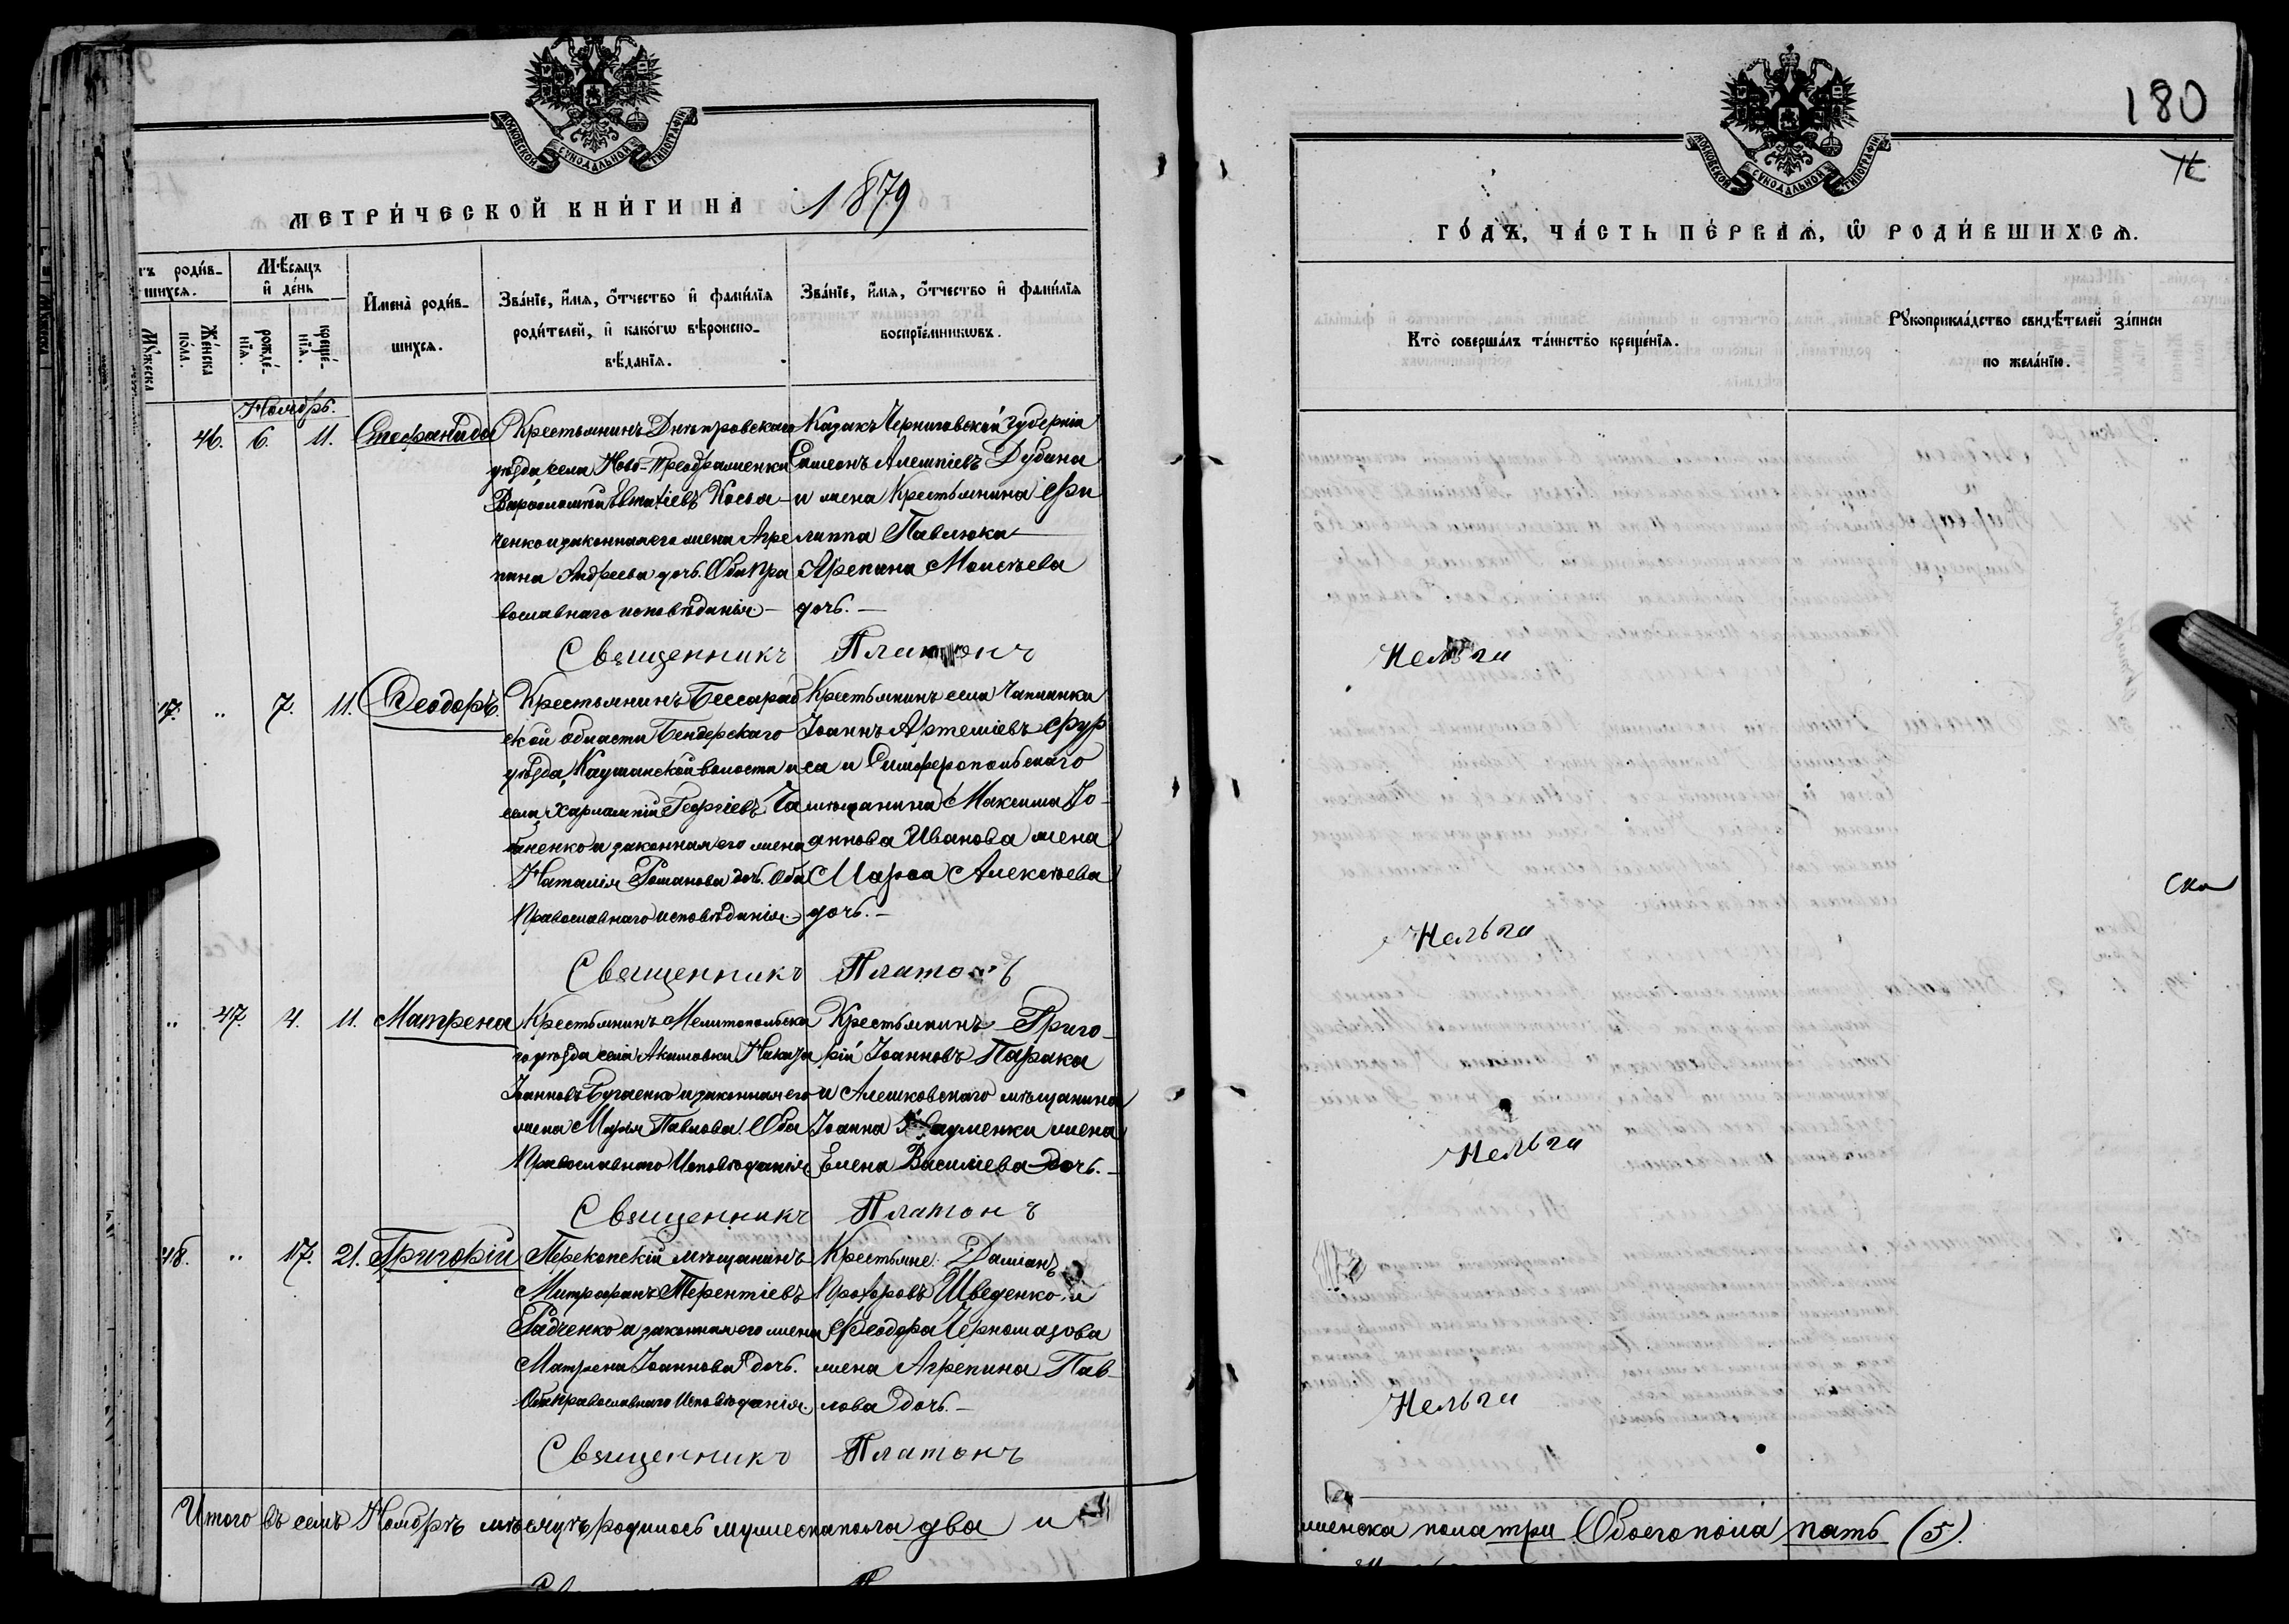 МОСКОВСКОЙ СУНОДАЛЬНОЙ ТИПОГРАФІИ
МЕТРИ́ЧЕСКОЙ КНИ́ГИ НА 1879
роди́в-
шихся.
Мѣ́сяцъ
и҆ де́нь
Мꙋ́жеска
Же́нска
по́ла.
рожде́-
нїѧ.
креще́-
нїѧ.
И҆мена̀ роди́в-
шихсѧ.
Зва́нїе, и҆́мѧ, ѻ҆́тчество и҆ фами́лїѧ
роди́телей, и҆ како́гѡ вѣроиспо-
вѣ́данїѧ.
Зва́нїе, и҆́мѧ, ѻ҆́тчество и҆ фами́лїѧ
воспрїе́мникѡвъ.
Ноябрь.
46. 6. 11. Стефанида
Крестьянинъ Днѣпровскаго
уѣзда села Ново-Преображенки
Варѳоломей Евтихіевъ Косья-
ченко и законная его жена Агре
пина Андреева дочь. Оба Пра
вославнаго исповѣданія.
Казакъ Черниговской губерніи
Симеонъ Алексіевъ Дубина
и жена Крестьянина Фи
липпа Павлюка
Агрепина Моисеева
дочь.
Священникъ Платонъ
17. „ 7. 11. Ѳеодоръ.
Крестьянинъ Бессараб
ской области Бендерскаго
уѣзда, Каушанской волости и
села, Харлампій Георгіевъ Ча
баненко и законная его жена
Наталія Романова дочь. Оба
Православнаго исповѣданія.
Крестьянинъ села Чаплинки
Іоаннъ Артеміевъ Фур
са и Симферопольскаго
мѣщанина Максима Іо-
аннова Иванова жена
Марѳа Алексѣева
дочь.
Священникъ Платонъ
„ 47. 4. 11. Матрена
Крестьянинъ Мелитопольска
го уѣзда села Акимовки Назарі
Іоанновъ Бугаенко и законная его
жена Марія Павлова. Оба
Православнаго Исповѣданія
Крестьянинъ Григо-
рій Іоанновъ Парака
и Алешковскаго мѣщанина
Іоанна Науменки жена
Елена Василіева дочь.
Священникъ Платонъ
48. „ 17. 21. Григорій
Перекопскій мѣщанинъ
Митрофанъ Терентіевъ
Радченко и законная его жена
Матрена Іоаннова дочь.
Оба православнаго Исповѣданія.
Крестьяне: Даміанъ
Прохоровъ Шведенко и
Ѳеодора Черномазова
жена Агрепина Пав-
лова дочь.
Священникъ Платонъ
Итого въ семъ Ноябрѣ мѣсяцѣ родилось мужеска пола два и
180
МОСКОВСКОЙ СУНОДАЛЬНОЙ ТИПОГРАФІИ
ГО́ДЪ, ЧА́СТЬ ПЕ́РВАѦ, Ѡ҆ РОДИ́ВШИХСѦ.
Кто̀ соверша́лъ та́инство креще́нїѧ.
Рꙋкоприкла́дство свидѣ́телей за́писи
по жела́нїю.
Нельги
Нельги
Нельги
Нельги
женска пола три Обоего пола пять (5).